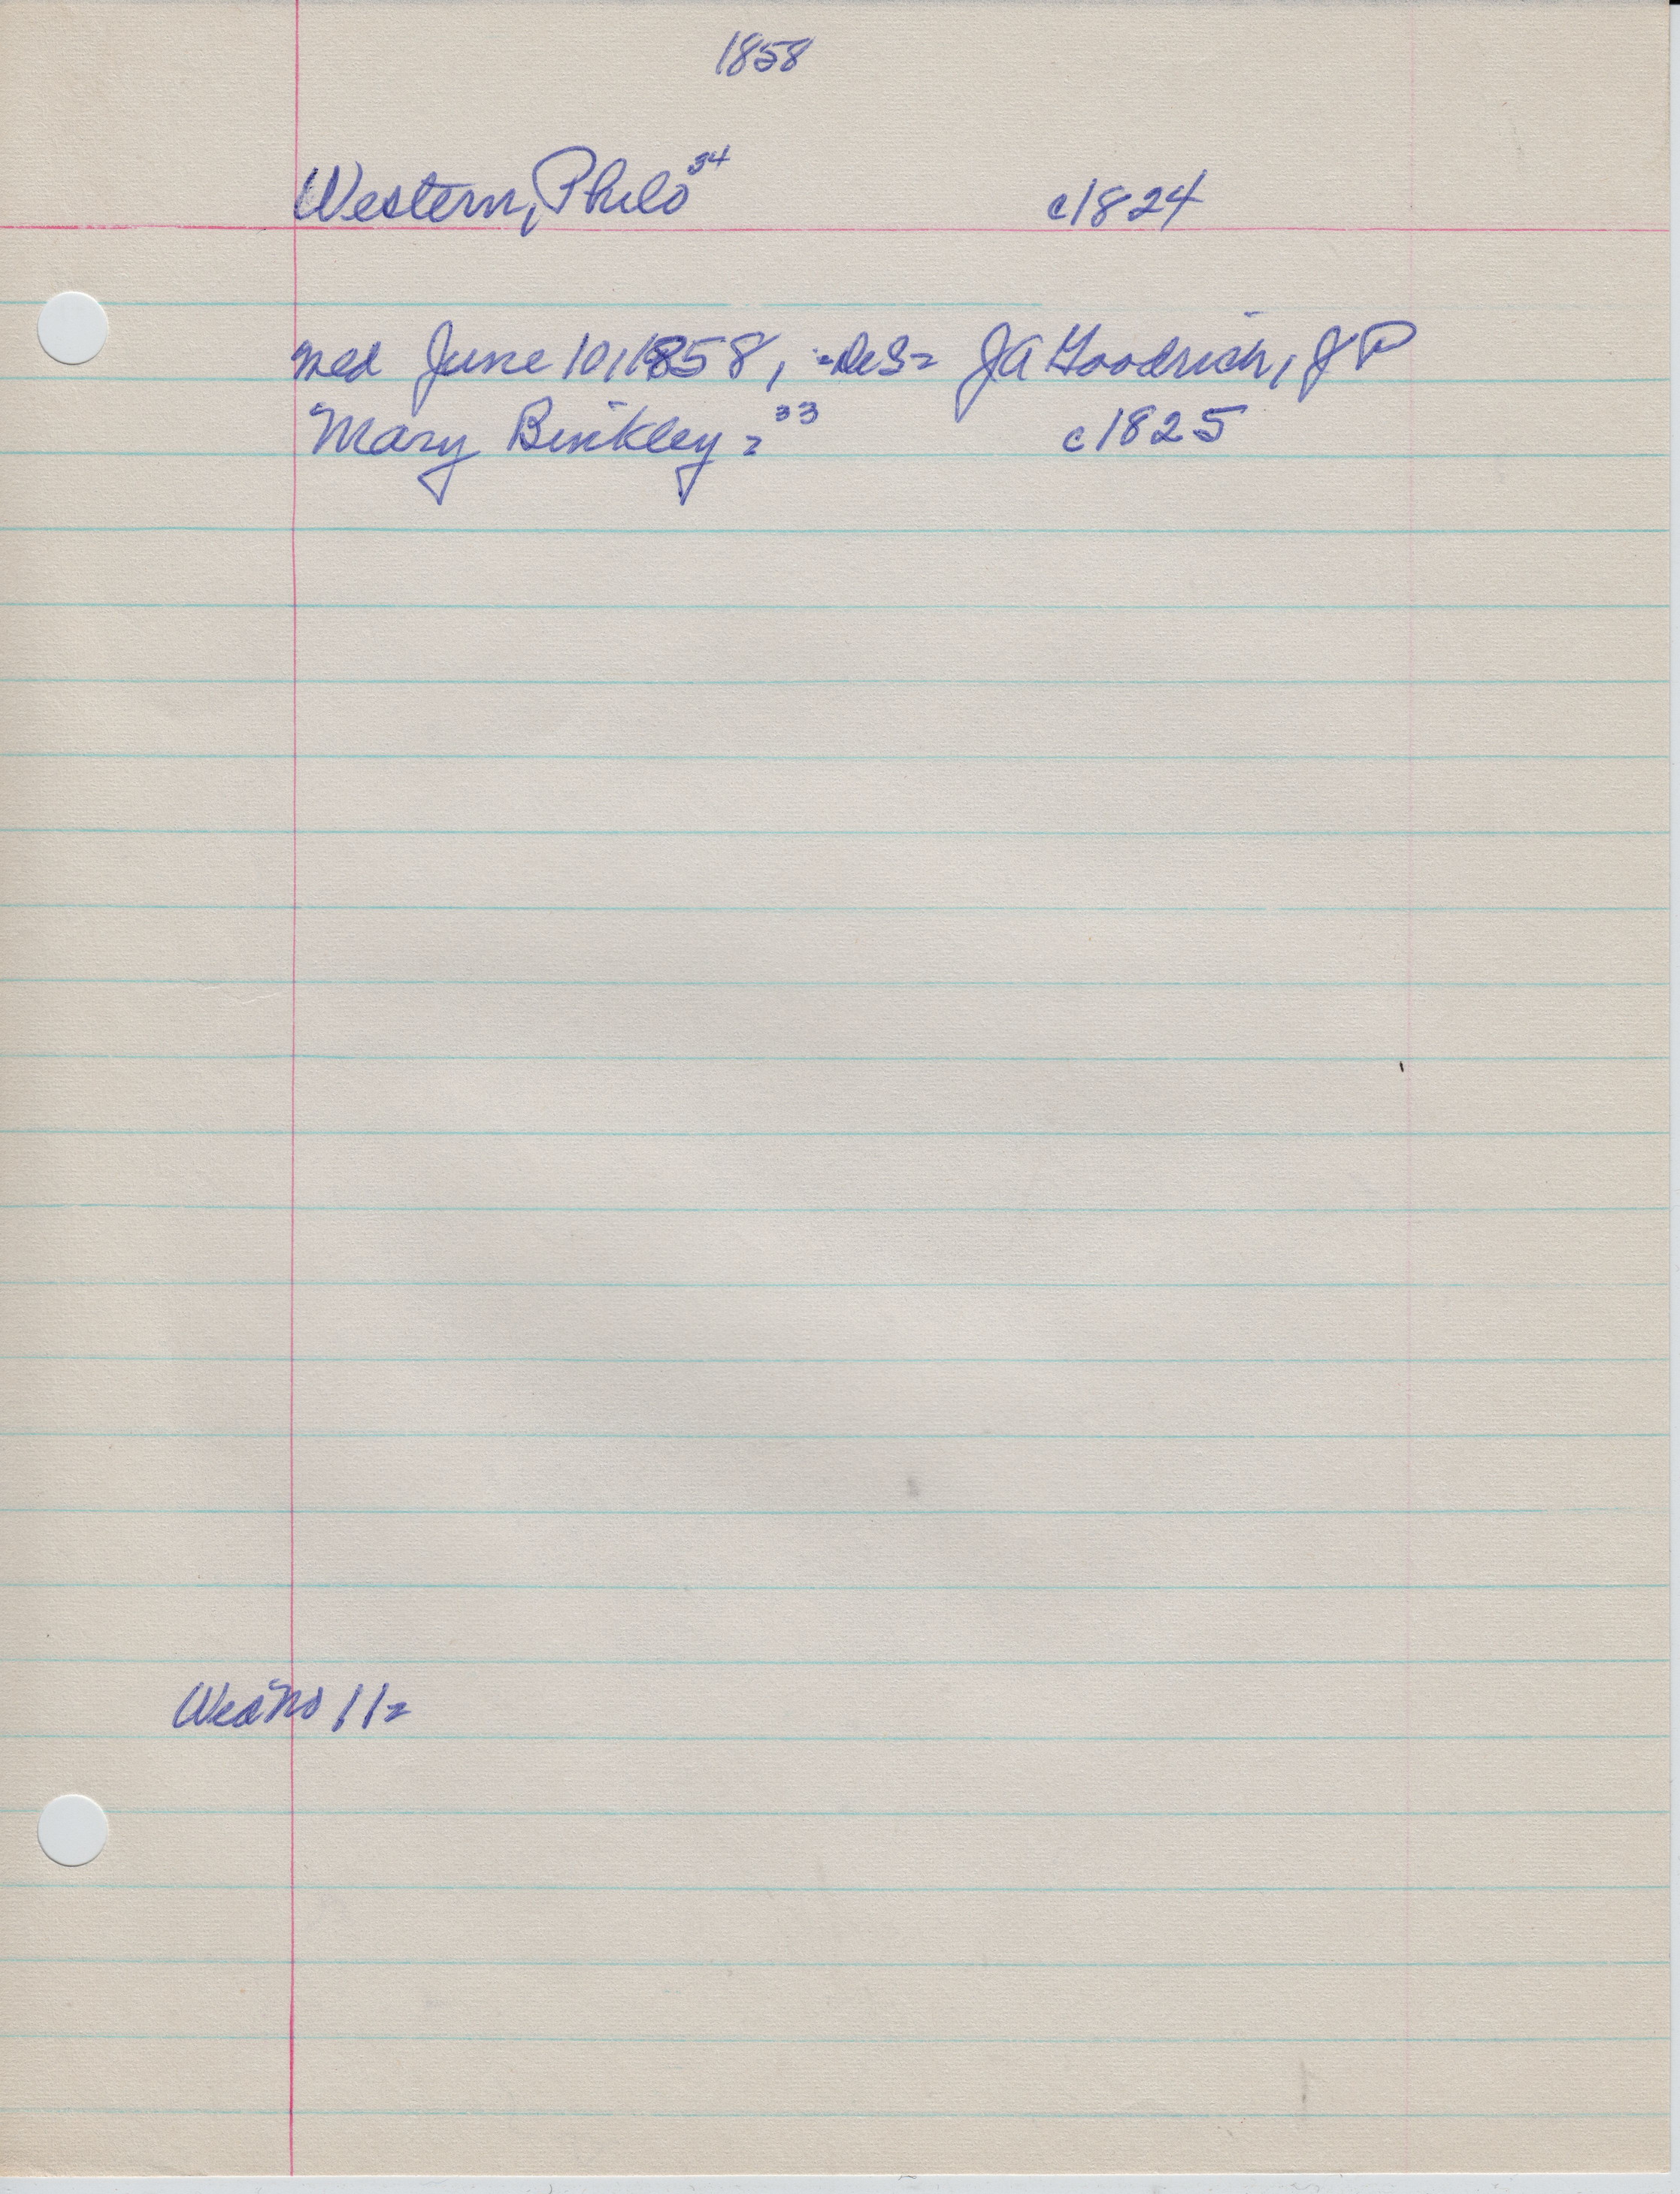 1858
Western, Philo 34 c1824
med June 10, 1858, =DeS= JA Goodrich, JP
Mary Binkley = 33 c1825
Wed No 11=